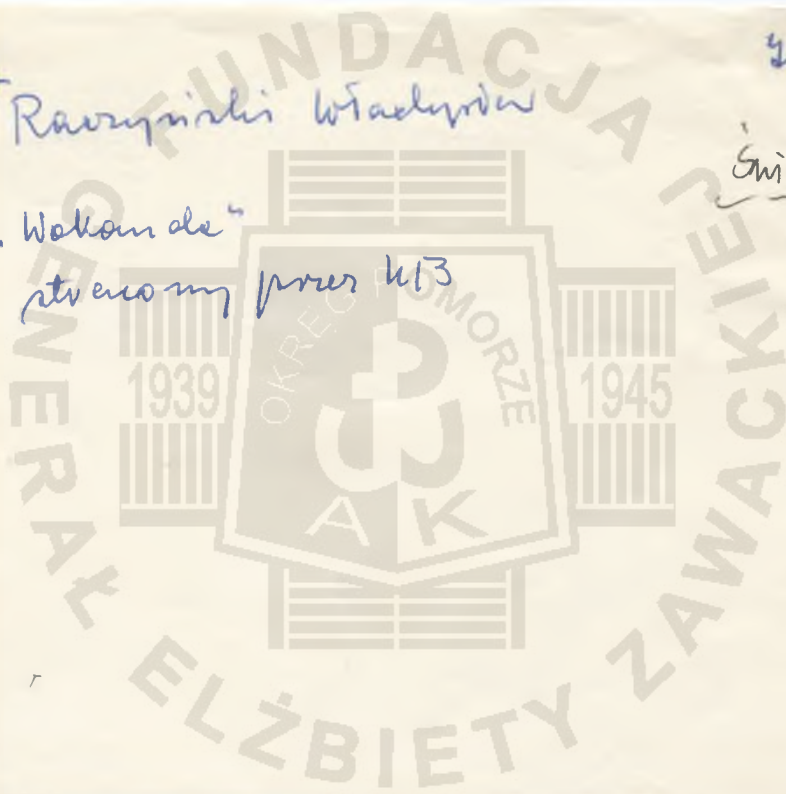 Raczyński Władysław
Świ
„Wokanda“
stracony przez UB
FUNDACJA
GENERAŁ ELŻBIETY ZAWACKIEJ
OKRĘG POMORZE
1939
1945
AK